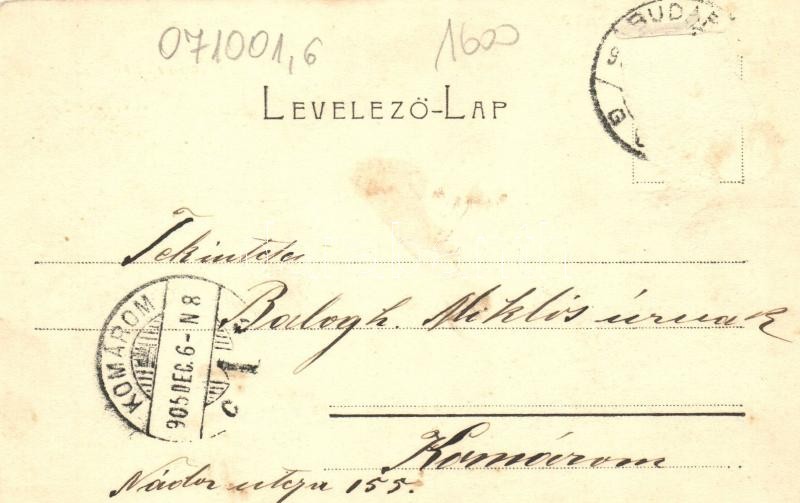 071001,6 1600
BUDAP
LEVELEZŐ-LAP
Tekintetes
Balogh Miklós úrnak
KOMÁROM
905 DEC. 6 - N 8
Komárom
Nádor utcza 155.